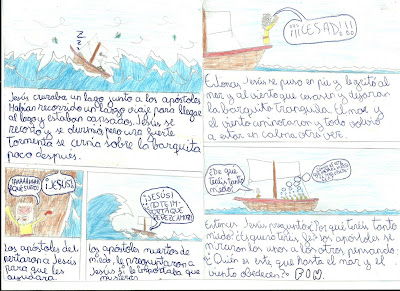 Z Z Z
Jesús cruzaba un lago junto a los apóstoles
Habían recorrido un largo viaje para llegar
al lago y estaban cansados. Jesús se
recostó y se durmió pero una fuerte
tormenta se cernía sobre la barquita
poco después.
¡JESÚS!
Los apóstoles des
pertaron a Jesús
para que les
ayudara
¡JESÚS!
¿NO TE IM-
PORTA QUE
PEREZCAMOS?
Los apóstoles muertos de
miedo, le preguntaron a
Jesús si le importaba que
muriesen
¡¡¡CESAD!!!
Entonces Jesús se puso en pie y le gritó al
mar y al viento que cesaran y dejaran
la barquita tranquila. El mar y
el viento amainaron y todo volvió
a estar en calma otra vez.
¿De qué
teneís tanto
miedo?
Entonces Jesús preguntó: ¿Por qué tenéis tanto
miedo? ¿Aún no tenéis fe? Los apóstoles se
miraron los unos a los otros pensando:
¿Quién es este que hasta el mar y el
viento obedecen?